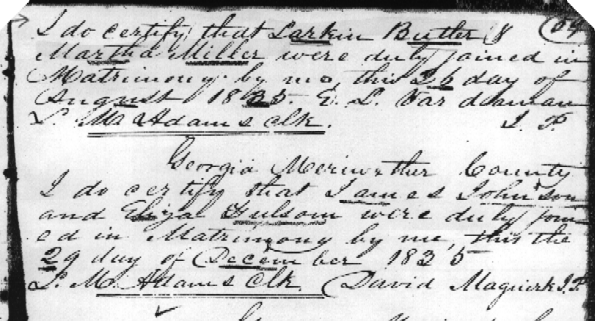 I do certify that Larkin Butler & 64
Martha Miller were duly joined in
Matrimony by me, this 26 day of
August 1835. E. L. Vardaman
L. M. Adams clk. J. P.
Georgia Meriwether County
I do certify that James Johnson
and Elizal Fulsom were duly join
ed in Matrimony by me, this the
29 day of December 1835
L. M. Adams Clk. David Maguirk J.P.